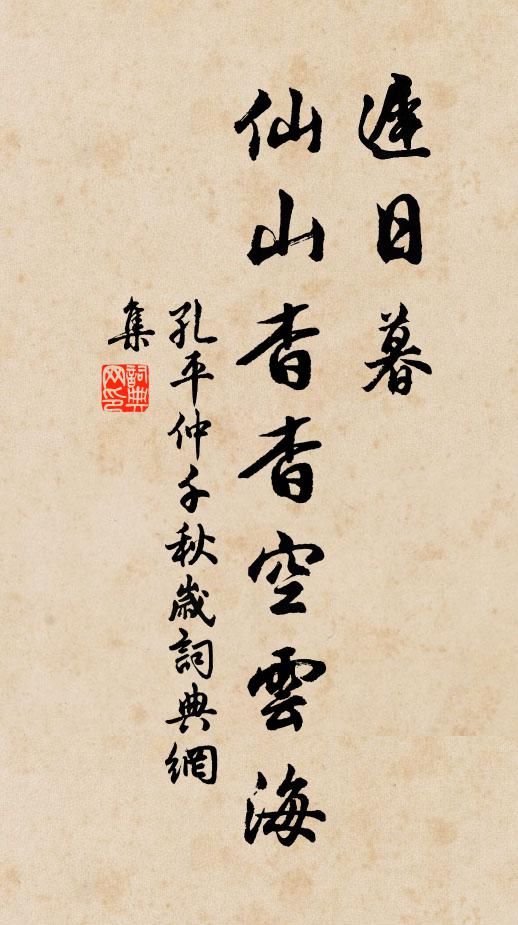 遅日暮
仙山杳杳空雲海
孔平仲千秋歲詞典網
集
詞典網印